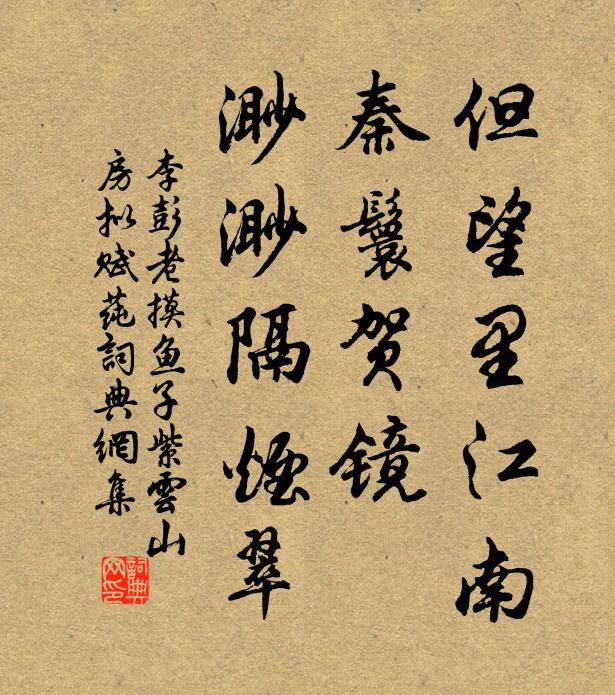 但望里江南
秦鬟贺镜
渺渺隔煙翠
李彭老摸鱼子紫雲山
房拟赋莼詞典網集
詞典
网印